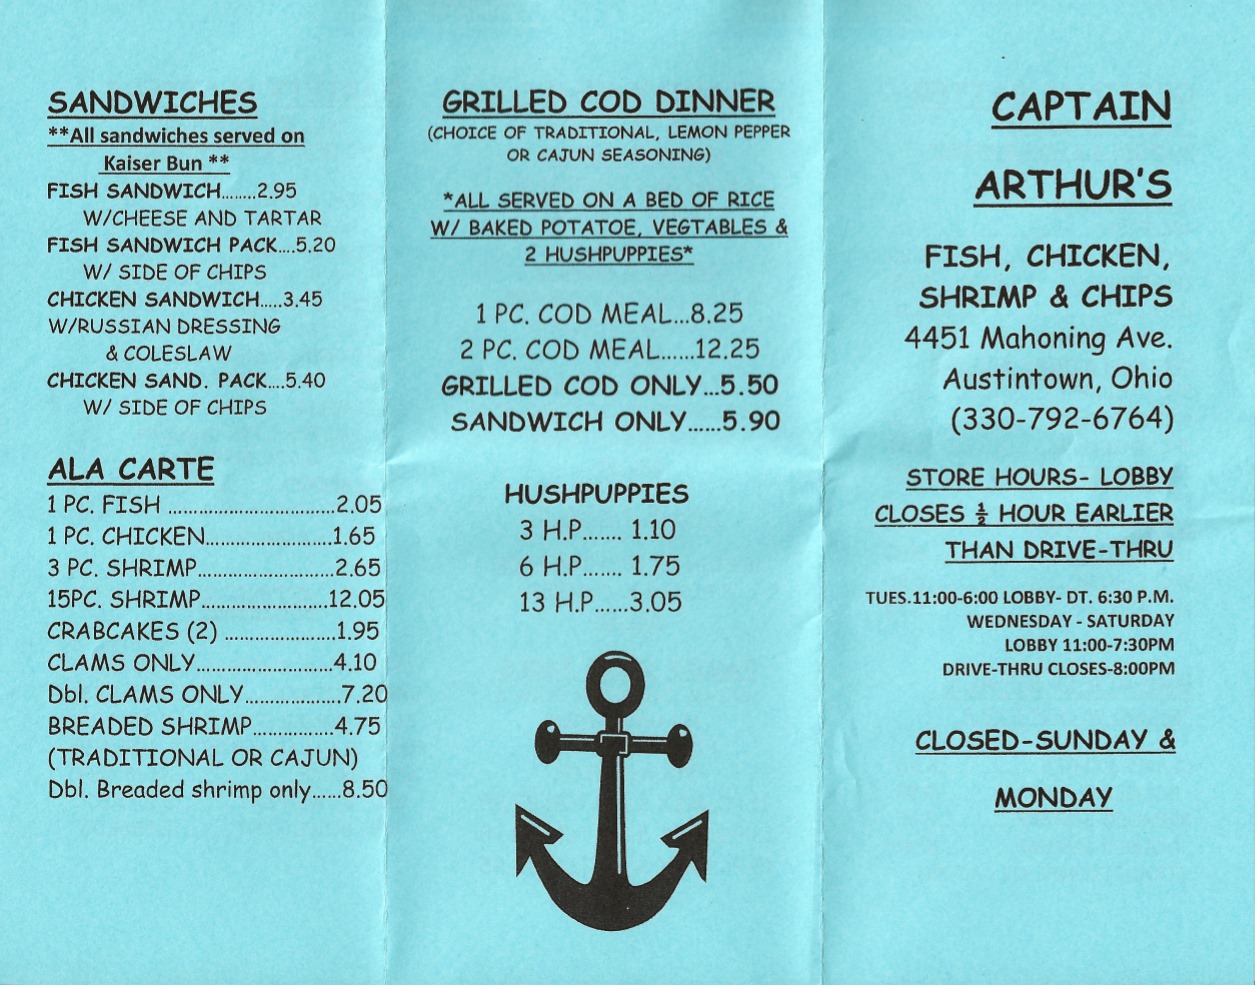 SANDWICHES
**All sandwiches served on
Kaiser Bun **
FISH SANDWICH........2.95
W/CHEESE AND TARTAR
FISH SANDWICH PACK....5.20
W/ SIDE OF CHIPS
CHICKEN SANDWICH.....3.45
W/RUSSIAN DRESSING
& COLESLAW
CHICKEN SAND. PACK....5.40
W/ SIDE OF CHIPS
ALA CARTE
1 PC. FISH ................................2.05
1 PC. CHICKEN.........................1.65
3 PC. SHRIMP...........................2.65
15PC. SHRIMP.........................12.05
CRABCAKES (2) ......................1.95
CLAMS ONLY...........................4.10
Dbl. CLAMS ONLY...................7.20
BREADED SHRIMP................4.75
(TRADITIONAL OR CAJUN)
Dbl. Breaded shrimp only......8.50
GRILLED COD DINNER
(CHOICE OF TRADITIONAL, LEMON PEPPER
OR CAJUN SEASONING)
*ALL SERVED ON A BED OF RICE
W/ BAKED POTATOE, VEGTABLES &
2 HUSHPUPPIES*
1 PC. COD MEAL...8.25
2 PC. COD MEAL......12.25
GRILLED COD ONLY...5.50
SANDWICH ONLY......5.90
HUSHPUPPIES
3 H.P....... 1.10
6 H.P....... 1.75
13 H.P......3.05
CAPTAIN
ARTHUR'S
FISH, CHICKEN,
SHRIMP & CHIPS
4451 Mahoning Ave.
Austintown, Ohio
(330-792-6764)
STORE HOURS- LOBBY
CLOSES ½ HOUR EARLIER
THAN DRIVE-THRU
TUES.11:00-6:00 LOBBY- DT. 6:30 P.M.
WEDNESDAY - SATURDAY
LOBBY 11:00-7:30PM
DRIVE-THRU CLOSES-8:00PM
CLOSED-SUNDAY &
MONDAY